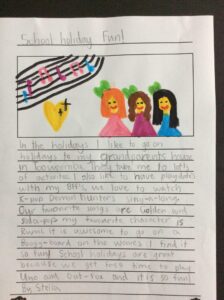 School holiday Fun!
In the holidays I like to go on
holidays to my grandparents house
in toowoomba. They take me to lots
of activities. I also like to have playdates
with my BFF's, we love to watch
K-pop Demon Hunters sing-along.
Our favourite songs are Golden and
Soda pop. my favourite character is
Rumi. it is awesome to go on a
Boogie-board on the waves I find it
so fun! School holidays are great
because I get free time to play
Uno and and it is so fun!
By Stella